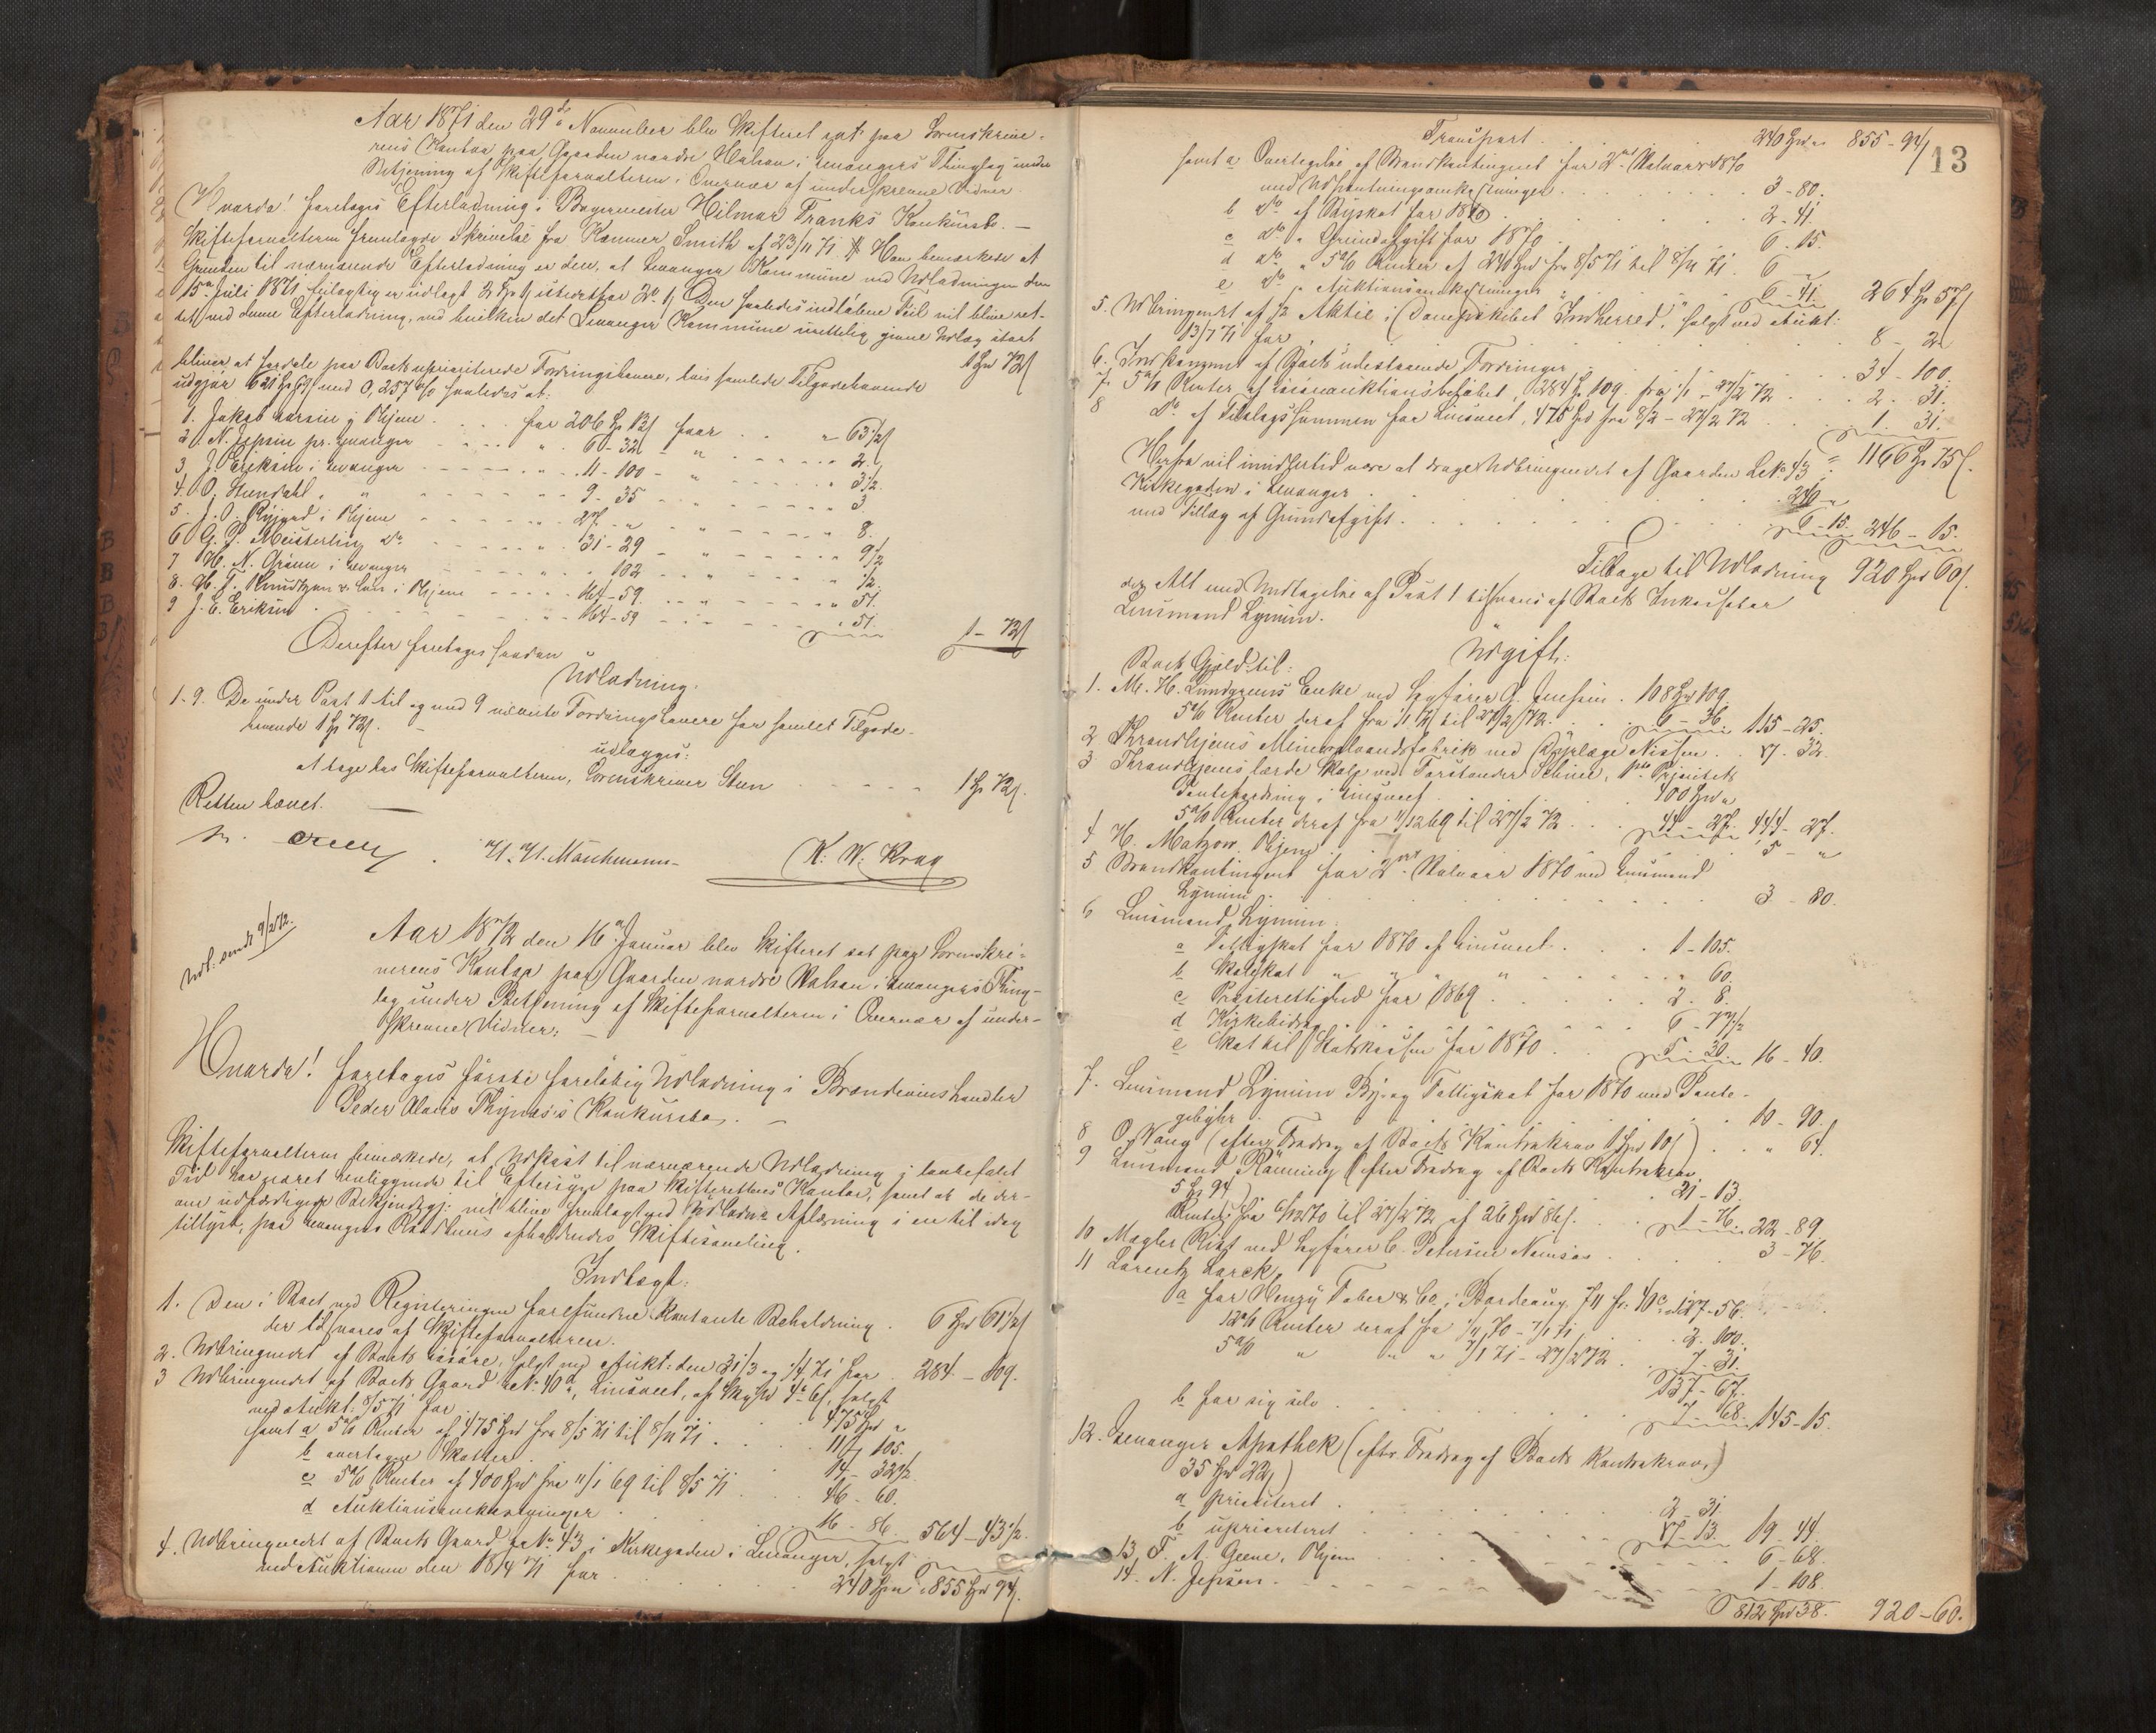 Aar 1871 den 29de November blev Skifteret sat paa Sorenskrive-
rens Kontor paa Gaarden nordre Halsan i Levangers Thinglag under
Betjening af Skifteforvalteren i Overvær af underskrevne Vidner.
Hvorda! foretages Efterlodning i Bagermester Hilmar Franks Konkursbo. —
Skifteforvalteren fremlagde Skrivelse fra Kæmner Smith af 23/11 71. Han bemærkede at
Grunden til nærværende Efterlodning er den, at Levanger Kommune ved Udlodningen den
15de Juli 1871 feilagtig er udlagt
tet ved denne Efterlodning, ved hvilken det Levanger Kommune urettelig givne Udlæg stort 1 Spd 72 s
bliver at fordele paa Boets uprioriterede Fordringshavere, hvis samlede Tilgodehavende
udgjør 621 med 0,257 % saaledes at:
1. Jakob Larsen, Thjem for 206 Sp 13 s faar " 63 1/2 s
2. N. Jepsen pr. Levanger " 6 - 32 " 2.
3. J. Eriksen i Levanger " 11 - 100 - " 3 1/2.
4. O. Sundahl " " 9 - 35 " 3.
5. J. O. i Thjem " 27 - " " 8.
6 G. S. Meisterlin do " 31 - 29 - " 9 1/2
7 H. N. Grønn i Levanger " " 102 " 1/2.
8. H. F. Knudtzon & Co i Thjem 164 - 59 " 51.
9 J. E. Eriksen 164 - 59 - " 51.
1 - 72 s
Derefter foretages saadan
Udlodning.
1-9. De under Post 1 til og med 9 nævnte Fordringshavere for samlet Tilgode-
havende 1 Sp 72 s.
udlægges:
at tage hos Skifteforvalteren, Sorenskriver Steen 1 Sp 72 s.
Retten hævet. —
K. W. Krag
Udl. sendt 9/2 72.
Aar 1872 den 16de Januar blev Skifteret sat paa Sorenskri-
verens Kontor paa Gaarden nordre Halsan i Levangers Thing-
lag under Betjening af Skifteforvalteren i Overvær af under-
skrevne Vidner: —
Hvorda! foretages første foreløbig Udlodning i Brændevinshandler
Peder Olaus Thynes's Konkursbo. —
Skifteforvalteren bemærkede, at Udkast til nærværende Udlodning i lovbefalet
Tid har været henliggende til Eftersyn paa Skifterettens Kontor, samt at de der-
om udfærdigede Bekjendtgj: vil blive fremlagt ved Udlodns Aflæsning i en til idag
tillyst, paa Levangers Raadhuus afholdendes Skiftesamling.
Indtægt:
1. Den i Boet ved Registreringen forefundne kontante Beholdning . 6 Spd 61 1/2 s
der tilsvares af Skifteforvalteren.
2. Udbringendet af Boets Løsøre, solgt ved Aukt: den 31/3 og 1/4 71 for 284 - 109.
3 Udbringendet af Boets Gaard LNo 40a, Linsveet, af Skyld 4 ort 6 s, solgt
ved Aukt: 8/5 71 for 475 Spd "
samt a 5 % Renter af 475 Spd fra 8/5 71 til 8/11 71 . 11 Sp 105.
b overtagne Skatter 14 - 32 1/2.
c 5 % Renter af 400 Spd fra 11/1 69 til 8/5 71 46 - 60.
d Auktionsomkostninger 16 - 86. 564 - 43 1/2.
4. Udbringendet af Boets Gaard LNo 43 i Kirkegaden i Levanger, solgt
ved Auktionen den 18/4 71 for 240 Spd " 855 Spd 94 s.
13
Transport 240 Spd " 855 - 94 s
samt a Overtagelse af Brandkontingent for 2det Halvaar 1870
med Udpantningsomkostninger 3 - 80.
b do af Byskat for 1870 2 - 41.
c do " Grundafgift for 1870 6 - 15.
d do " 5 % Renter af 240 Spd fra 8/5 71 til 8/11 71 . 6 - "
e do " Auktionsomkostninger 6 - 41. 264 Sp 57 s
5. Udbringendet af 1/2 Aktie i Dampskibet "Indherred", solgt ved Aukt:
13/7 71 for 8 - 2
6. Indkommet af Boets udestaaende Fordringer 34 - 100.
7. 5 % Renter af Løsøreauktionsbeløbet, 284 Sp 109 fra 1/1 - 27/2 72 2 - 31.
8 do af Tilslagssummen for Linsveet, 475 Spd fra 8/2 - 27/2 72 1 - 31.
1166 Sp 75 s.
Herfra vil imidlertid være at drage Udbringendet af Gaarden LNo 43
Kirkegaden i Levanger 240 - "
med Tillæg af Grundafgift 6 - 15. 246 - 15.
Tilbage til Udlodning 920 Spd 60 s.
der Alt med Undtagelse af Post 1 tilsvares af Boets Inkassator
Lensmand Lynum.
Udgift:
Boets Gjeld til:
1. M. H. Lundgreens Enke ved Sagfører G. Jenssen . 108 Spd 109
5 % Renter deraf fra 1/1 71 til 27/2 72 6 - 36. 115 - 25.
2 Throndhjems Mineralvandsfabrik ved Nissen . . 7 - 32
3 Throndhjems lærde Skole ved Forstander , 1ste Prioritets
Pantefordring i Linsveet 400 Spd "
5 % Renter deraf fra 11/12 69 til 27/2 72 44 - 27. 444 - 27.
4 H. Matzow, Thjem 5 - "
5 Brandkontingent for 2det Halvaar 1870 ved Lensmand
Lynum 3 - 80.
6 Lensmand Lynum:
a Fattigskat for 1870 af Linsveet 1 - 105.
b Skolskat " " " " 60.
c Presterettighed for 1869 2 - 8.
d Kirkebidrag 6 - 77 1/2
e Skat til Statskassen for 1870 5 - 30 16 - 40.
7. Lensmand Lynum By- og Fattigskat for 1870 med Pante-
gebyhr 10 - 90.
8 O. Vang (efter Fradrag af Boets Kontrakrav 1 Spd 10 s) " 64.
9 Lensmand Rønning (efter Fradrag af Boets Kontrakrav
5 Sp 94) 21 - 13.
Renter fra 6/12 70 til 27/2 72 af 26 Spd 86 s. 1 - 76. 22 - 89.
10 Magler Rist ved Sagfører C. Petersen Namsos 3 - 76.
11 Lorentz Lorck,
a for Henry Faber & Co. i Bordeaux 711 fr. 40 c. 127 - 56.
12 % Renter deraf fra 1/11 70 - 7/1 71 2 - 100.
5 % " " " 7/1 71 - 27/2 72 7 - 31.
137 - 67.
b for sig selv 7 - 68. 145 - 15.
12. Levanger Apothek (eftr. Fradrag af Boets Kontrakrav,
35 Spd 22 s)
a prioriteret 2 - 31
b uprioriteret 17 - 13. 19 - 44.
13 F. A. Geene, Thjem 6 - 68.
14. N. Jepsen 1 - 108.
812 Spd 38. 920 - 60.